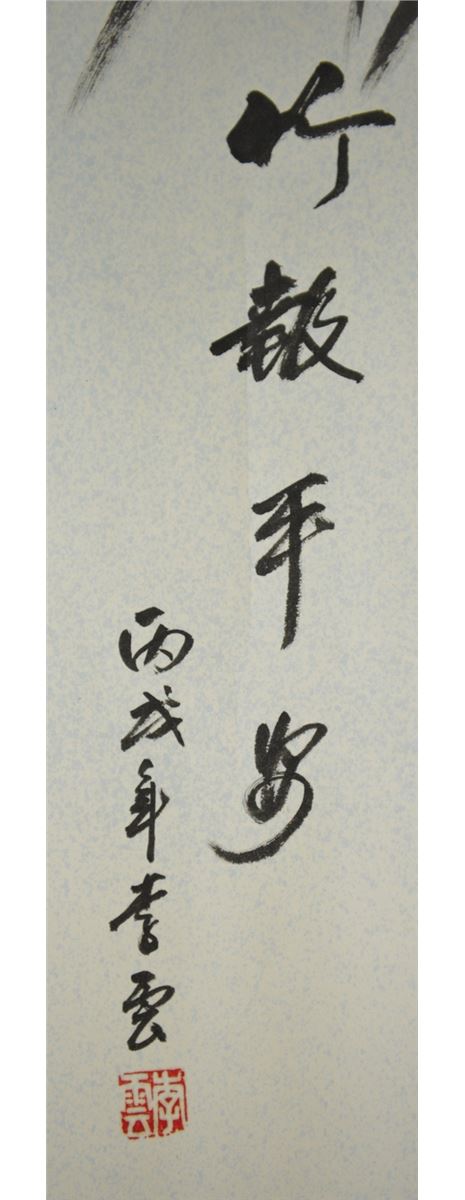 竹報平安
丙戌年李雲
李雲